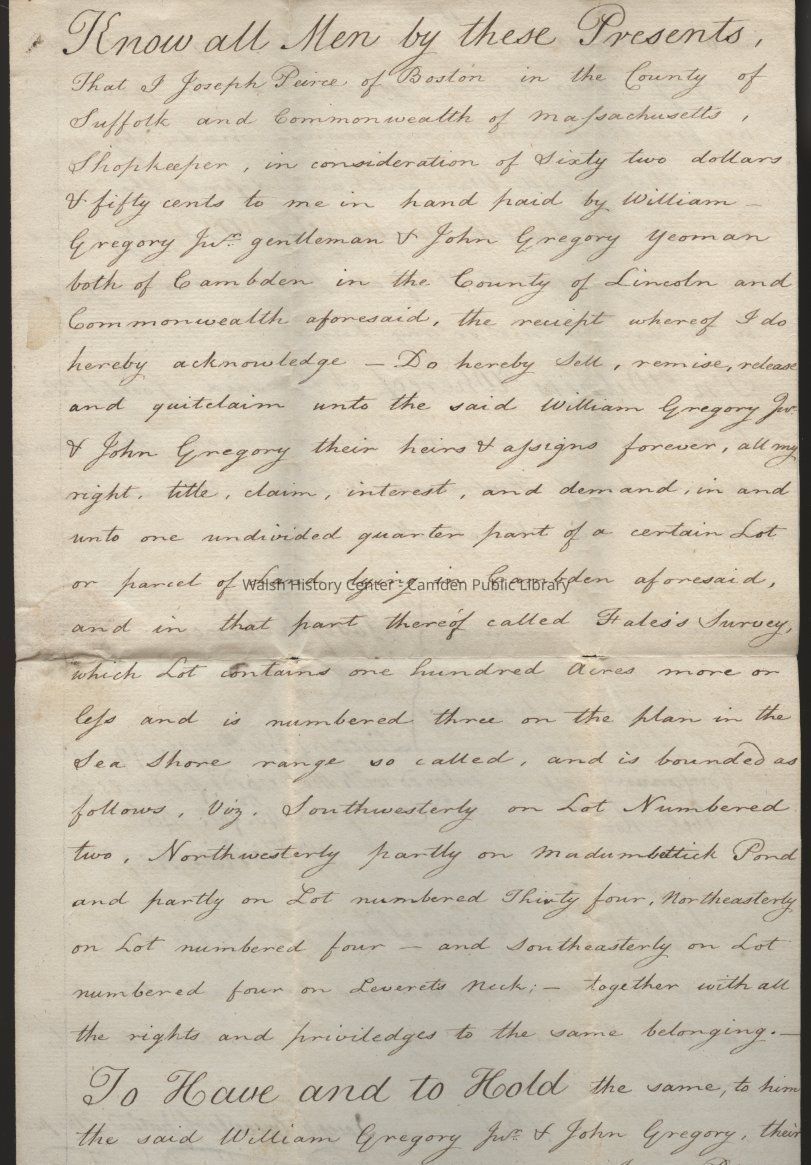 Know all Men by these Presents,
That I Joseph Peirce of Boston in the County of
Suffolk and Commonwealth of Massachusetts,
Shopkeeper, in consideration of Sixty two dollars
& fifty cents to me in hand paid by William –
Gregory Junr. gentleman & John Gregory Yeoman
both of Cambden in the County of Lincoln and
Commonwealth aforesaid, the reciept whereof I do
hereby acknowledge – Do hereby Sell, remise, release
and quitclaim unto the said William Gregory Junr
& John Gregory their heirs & assigns forever, all my
right, title, claim, interest, and demand, in and
unto one undivided quarter part of a certain Lot
or parcel of Land lying in Cambden aforesaid,
Walsh History Center - Camden Public Library
and in that part thereof called Fales's Survey,
which Lot contains one hundred Acres more or
less and is numbered three on the plan in the
Sea Shore range so called, and is bounded as
follows, Viz. Southwesterly on Lot Numbered
two, Northwesterly partly on Madumbettick Pond
and partly on Lot numbered Thirty four, Northeasterly
on Lot numbered four – and Southeasterly on Lot
numbered four on Leverets Neck; – together with all
the rights and priviledges to the same belonging. –
To Have and to Hold the same, to him
the said William Gregory Junr. & John Gregory, their